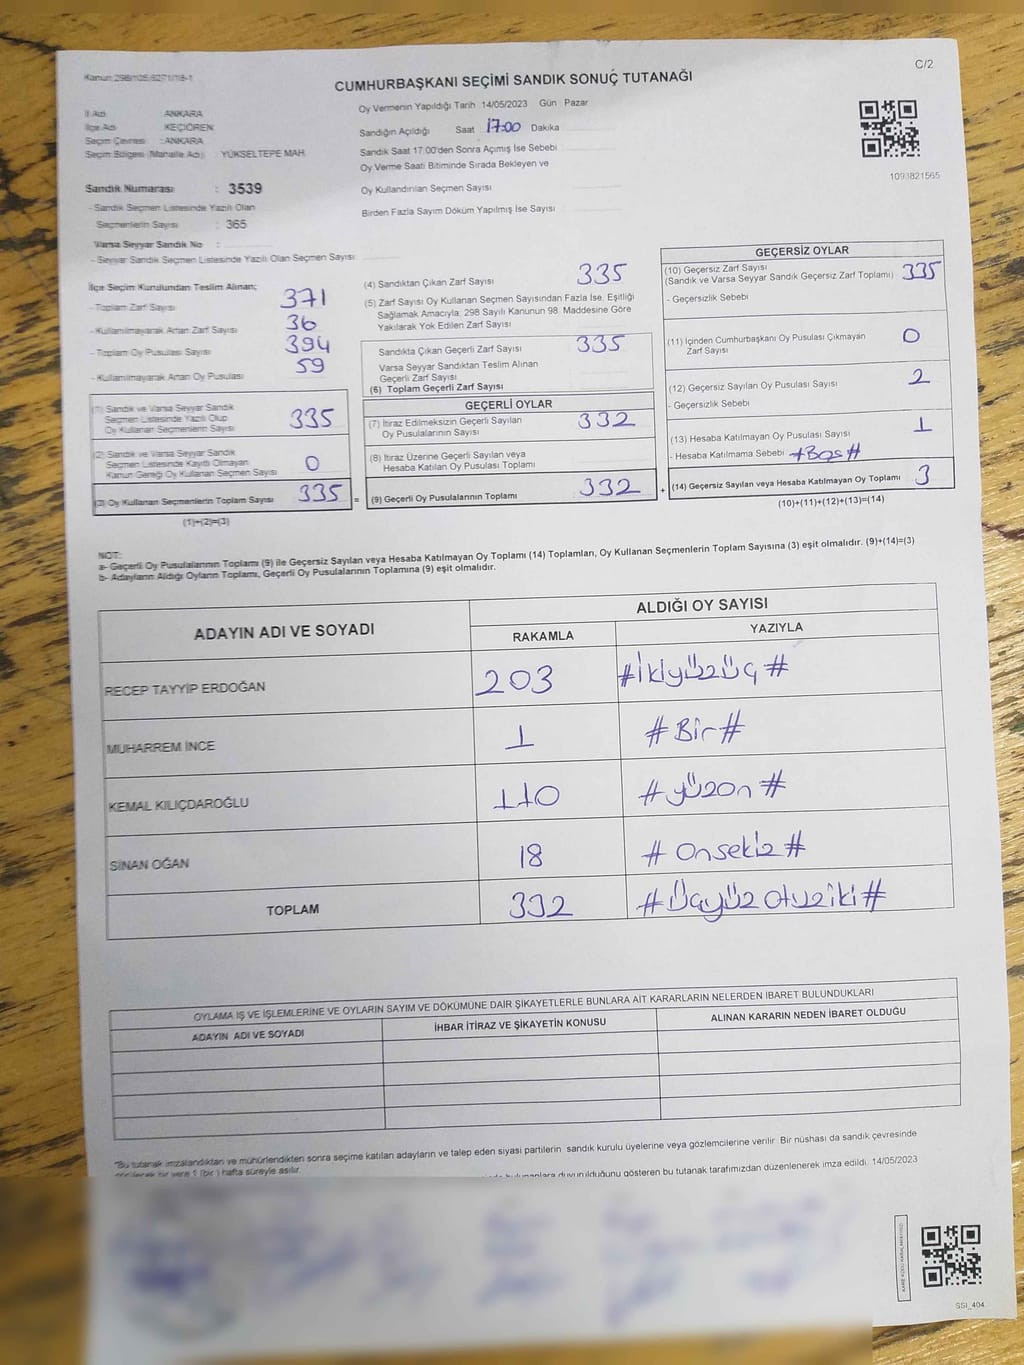 Kanun:298/105/6271/18-1
C/2
CUMHURBAŞKANI SEÇİMİ SANDIK SONUÇ TUTANAĞI
İl Adı : ANKARA
İlçe Adı : KEÇİÖREN
Seçim Çevresi : ANKARA
Seçim Bölgesi (Mahalle Adı) : YÜKSELTEPE MAH.
Sandık Numarası : 3539
- Sandık Seçmen Listesinde Yazılı Olan
Seçmenlerin Sayısı : 365
Varsa Seyyar Sandık No :
- Seyyar Sandık Seçmen Listesinde Yazılı Olan Seçmen Sayısı :
Oy Vermenin Yapıldığı Tarih 14/05/2023 Gün Pazar
Sandığın Açıldığı Saat 17:00 Dakika
Sandık Saat 17:00'den Sonra Açımış İse Sebebi
Oy Verme Saati Bitiminde Sırada Bekleyen ve
Oy Kullandırılan Seçmen Sayısı
Birden Fazla Sayım Döküm Yapılmış İse Sayısı
1093821565
İlçe Seçim Kurulundan Teslim Alınan;
- Toplam Zarf Sayısı 371
- Kullanılmayarak Artan Zarf Sayısı 36
- Toplam Oy Pusulası Sayısı 394
- Kullanılmayarak Artan Oy Pusulası 59
(1) Sandık ve Varsa Seyyar Sandık
Seçmen Listesinde Yazılı Olup
Oy Kullanan Seçmenlerin Sayısı 335
(2) Sandık ve Varsa Seyyar Sandık
Seçmen Listesinde Kayıtlı Olmayan
Kanun Gereği Oy Kullanan Seçmen Sayısı 0
(3) Oy Kullanan Seçmenlerin Toplam Sayısı 335 =
(1)+(2)=(3)
(4) Sandıktan Çıkan Zarf Sayısı 335
(5) Zarf Sayısı Oy Kullanan Seçmen Sayısından Fazla İse, Eşitliği
Sağlamak Amacıyla, 298 Sayılı Kanunun 98. Maddesine Göre
Yakılarak Yok Edilen Zarf Sayısı
Sandıkta Çıkan Geçerli Zarf Sayısı 335
Varsa Seyyar Sandıktan Teslim Alınan
Geçerli Zarf Sayısı
(6) Toplam Geçerli Zarf Sayısı
GEÇERLİ OYLAR
(7) İtiraz Edilmeksizin Geçerli Sayılan
Oy Pusulalarının Sayısı 332
(8) İtiraz Üzerine Geçerli Sayılan veya
Hesaba Katılan Oy Pusulası Toplamı
(9) Geçerli Oy Pusulalarının Toplamı 332 +
GEÇERSİZ OYLAR
(10) Geçersiz Zarf Sayısı
(Sandık ve Varsa Seyyar Sandık Geçersiz Zarf Toplamı) 335
- Geçersizlik Sebebi
(11) İçinden Cumhurbaşkanı Oy Pusulası Çıkmayan
Zarf Sayısı 0
(12) Geçersiz Sayılan Oy Pusulası Sayısı 2
- Geçersizlik Sebebi
(13) Hesaba Katılmayan Oy Pusulası Sayısı 1
- Hesaba Katılmama Sebebi #Boş#
(14) Geçersiz Sayılan veya Hesaba Katılmayan Oy Toplamı 3
(10)+(11)+(12)+(13)=(14)
NOT:
a- Geçerli Oy Pusulalarının Toplamı (9) ile Geçersiz Sayılan veya Hesaba Katılmayan Oy Toplamı (14) Toplamları, Oy Kullanan Seçmenlerin Toplam Sayısına (3) eşit olmalıdır. (9)+(14)=(3)
b- Adayların Aldığı Oyların Toplamı, Geçerli Oy Pusulalarının Toplamına (9) eşit olmalıdır.
ADAYIN ADI VE SOYADI
ALDIĞI OY SAYISI
RAKAMLA YAZIYLA
RECEP TAYYİP ERDOĞAN 203 #İkiyüzüç#
MUHARREM İNCE 1 #Bir#
KEMAL KILIÇDAROĞLU 110 #yüzon#
SİNAN OĞAN 18 #onsekiz#
TOPLAM 332 #Üçyüzotuziki#
OYLAMA İŞ VE İŞLEMLERİNE VE OYLARIN SAYIM VE DÖKÜMÜNE DAİR ŞİKAYETLERLE BUNLARA AİT KARARLARIN NELERDEN İBARET BULUNDUKLARI
ADAYIN ADI VE SOYADI İHBAR İTİRAZ VE ŞİKAYETİN KONUSU ALINAN KARARIN NEDEN İBARET OLDUĞU
*Bu tutanak imzalandıktan ve mühürlendikten sonra seçime katılan adayların ve talep eden siyasi partilerin sandık kurulu üyelerine veya gözlemcilerine verilir. Bir nüshası da sandık çevresinde
görülecek bir yere 1 (bir) hafta süreyle asılır.
bulunanlara duyurulduğunu gösteren bu tutanak tarafımızdan düzenlenerek imza edildi. 14/05/2023
SSI_404